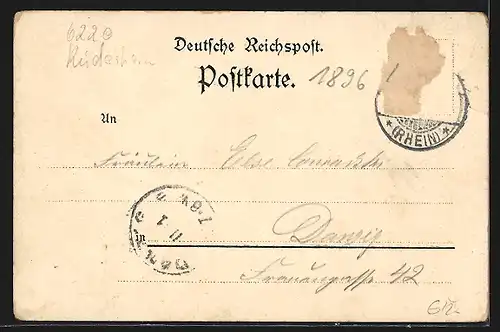 6220
Rüdesheim
Deutsche Reichspost.
Postkarte.
1896
(RHEIN)
An
Fräulein Else
in Danzig
Frauengasse 42